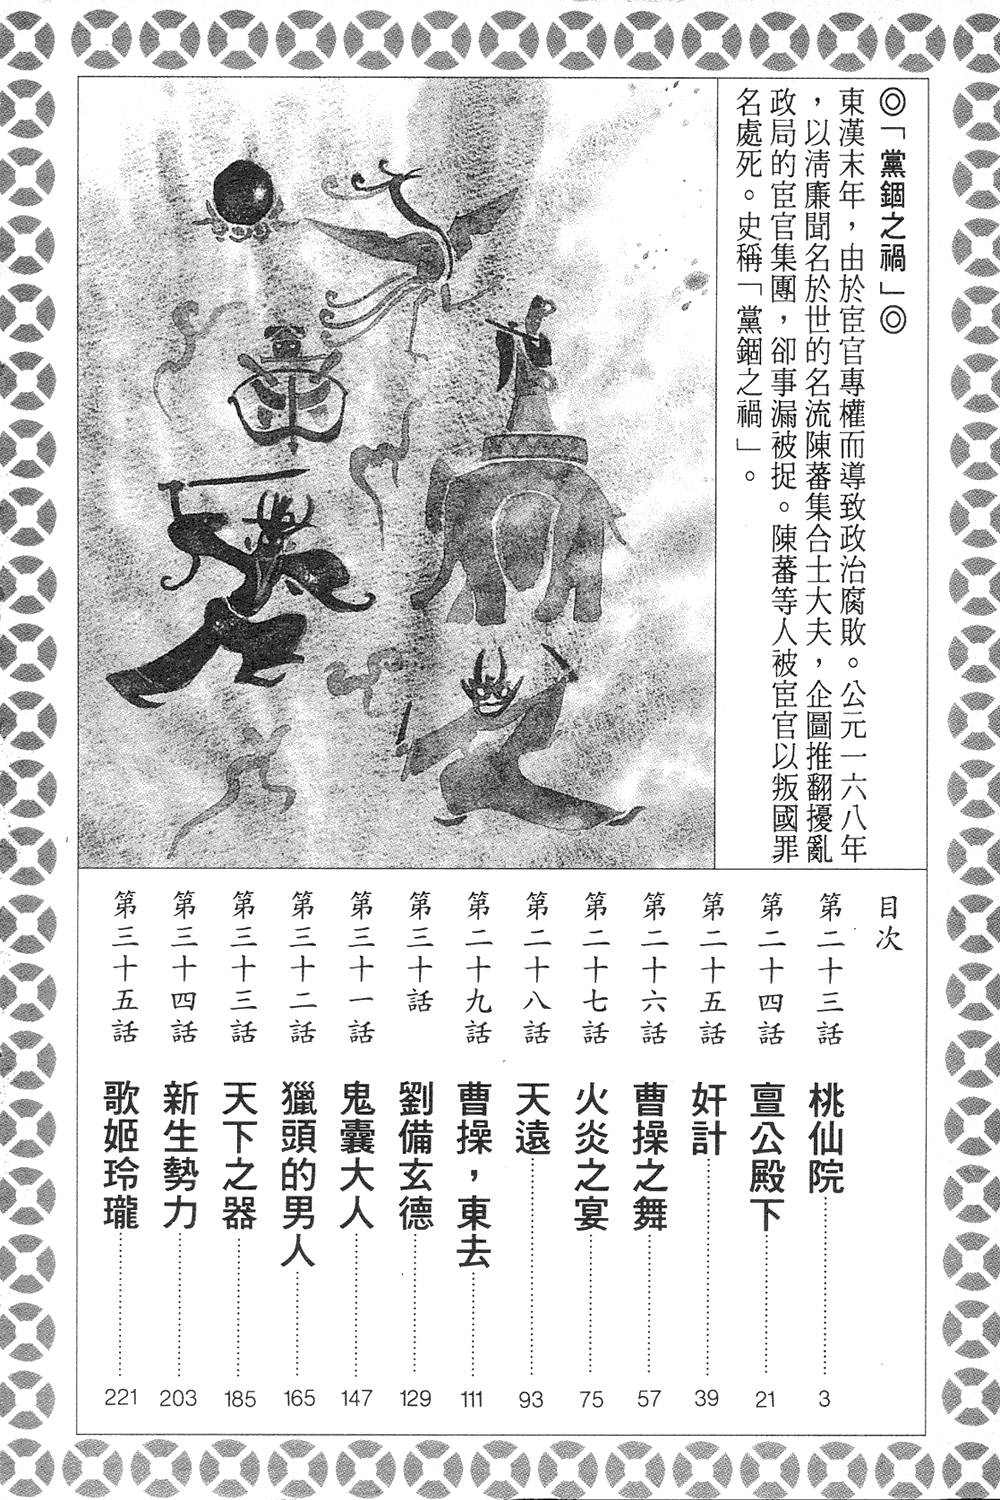 ◎「黨錮之禍」◎
東漢末年，由於宦官專權而導致政治腐敗。公元一六八年
，以清廉聞名於世的名流陳蕃集合士大夫，企圖推翻擾亂
政局的宦官集團，卻事漏被捉。陳蕃等人被宦官以叛國罪
名處死。史稱「黨錮之禍」。
目次
第二十三話 桃仙院 3
第二十四話 亶公殿下 21
第二十五話 奸計 39
第二十六話 曹操之舞 57
第二十七話 火炎之宴 75
第二十八話 天遠 93
第二十九話 曹操，東去 111
第三十話 劉備玄德 129
第三十一話 鬼囊大人 147
第三十二話 獵頭的男人 165
第三十三話 天下之器 185
第三十四話 新生勢力 203
第三十五話 歌姬玲瓏 221